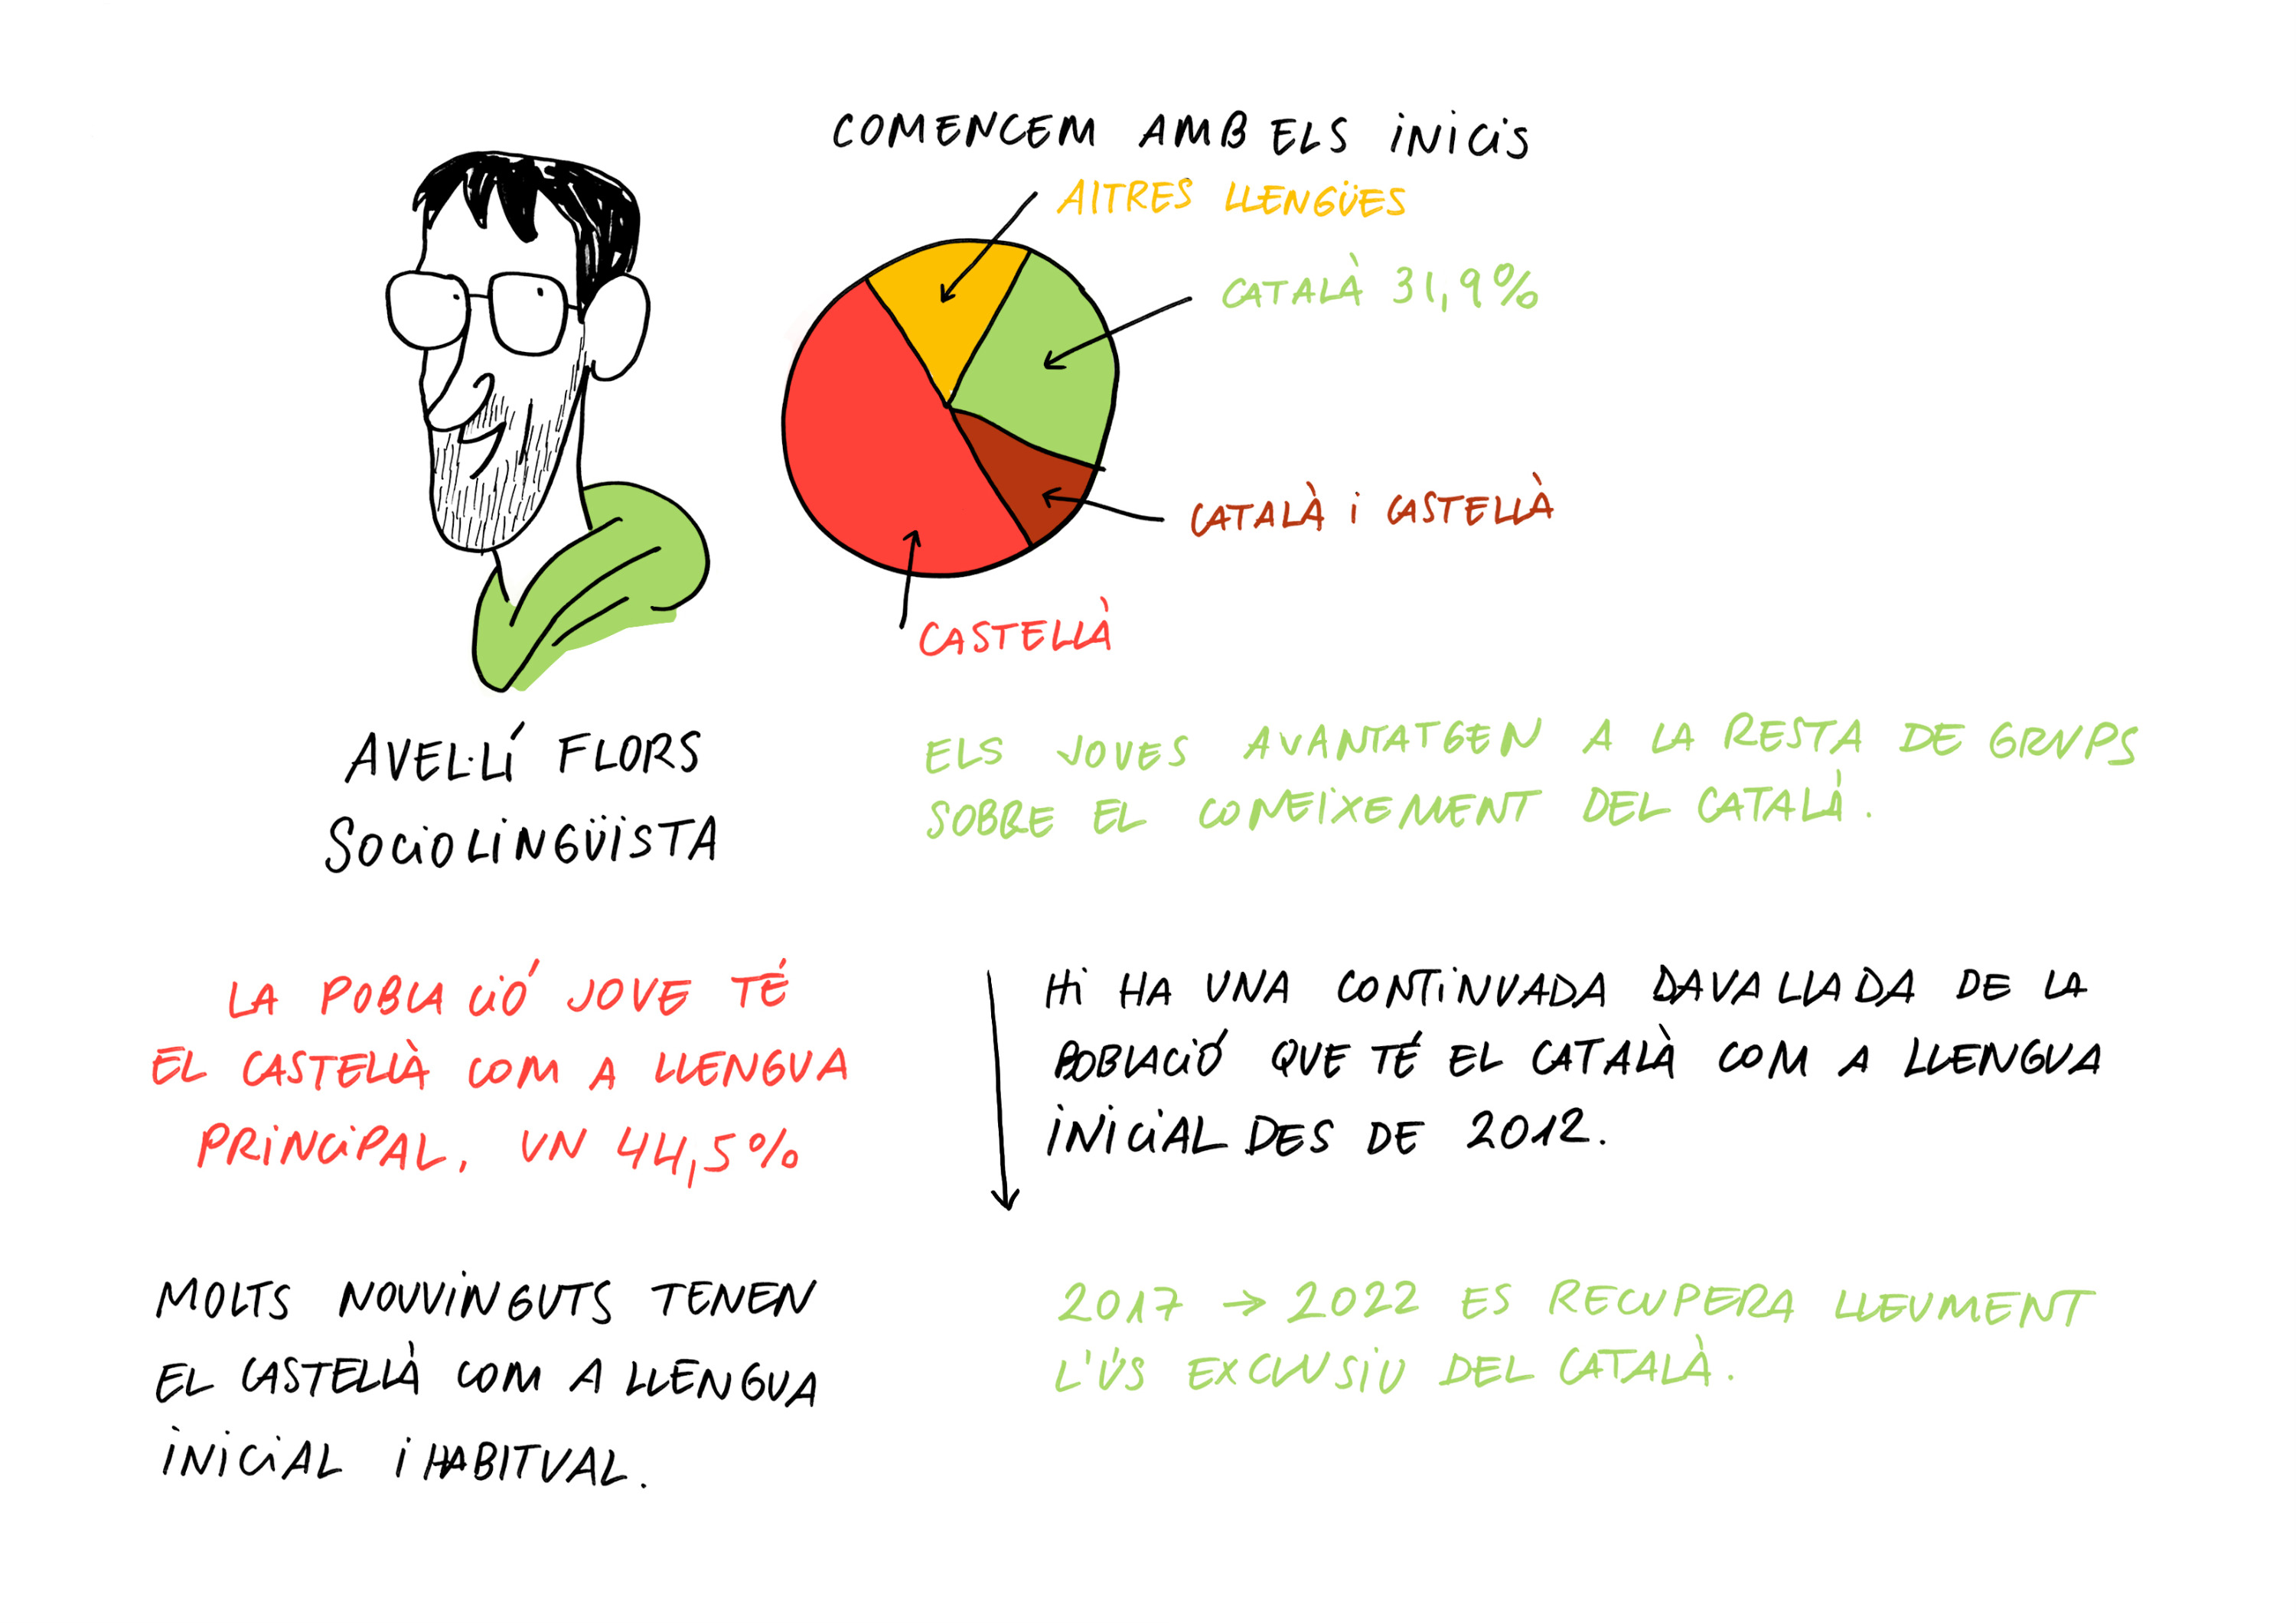 COMENCEM AMB ELS INICIS
ALTRES LLENGÜES
CATALÀ 31,9%
CATALÀ I CASTELLÀ
CASTELLÀ
AVEL·LÍ FLORS
SOCIOLINGÜISTA
ELS JOVES AVANTATGEN A LA RESTA DE GRUPS
SOBRE EL CONEIXEMENT DEL CATALÀ.
LA POBLACIÓ JOVE TÉ
EL CASTELLÀ COM A LLENGUA
PRINCIPAL, UN 44,5%
HI HA UNA CONTINUADA DAVALLADA DE LA
POBLACIÓ QUE TÉ EL CATALÀ COM A LLENGUA
INICIAL DES DE 2012.
MOLTS NOUVINGUTS TENEN
EL CASTELLÀ COM A LLENGUA
INICIAL I HABITUAL.
2017 → 2022 ES RECUPERA LLEUMENT
L'ÚS EXCLUSIU DEL CATALÀ.